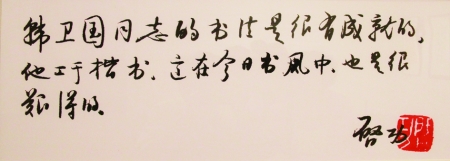 韩卫国同志的书法是很有成就的，
他工于楷书，这在今日书风中，也是很
难得的。
启功